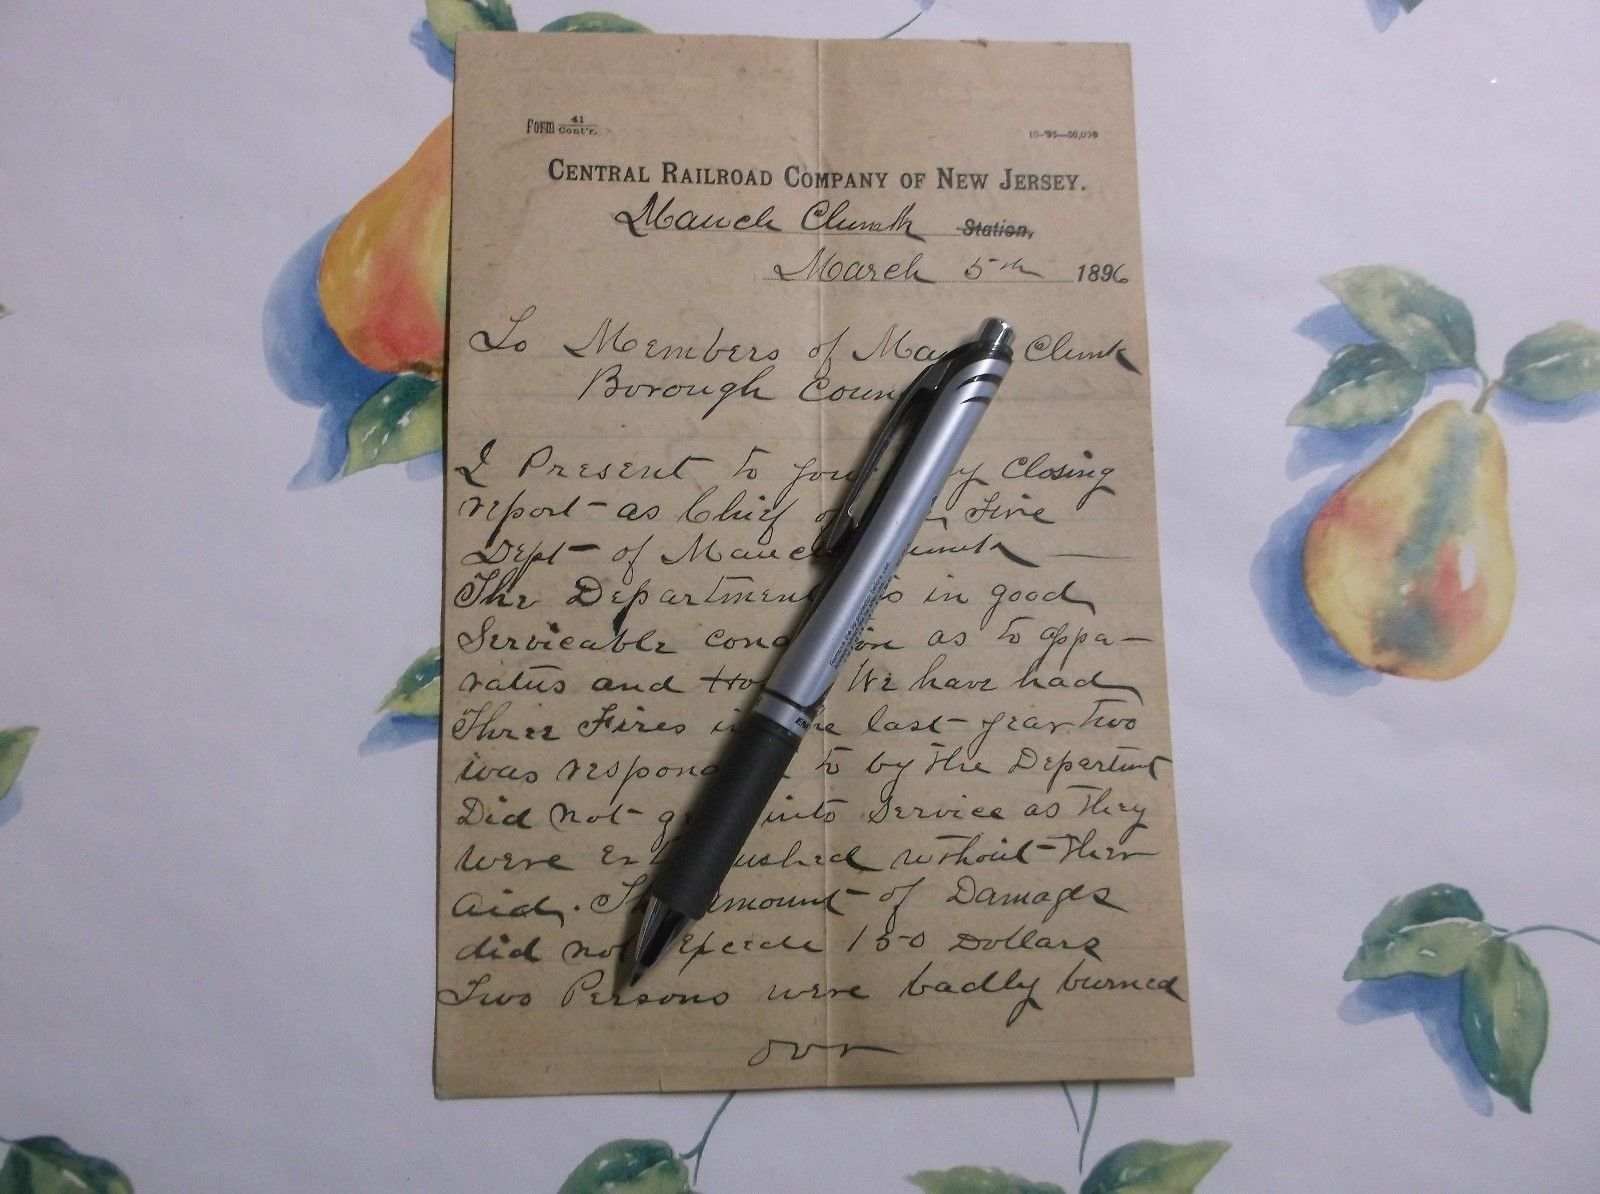 Form 41
Cont'r.
CENTRAL RAILROAD COMPANY OF NEW JERSEY.
Mauch Chunk Station,
March 5th 1896
To Members of Ma Chunk
Borough Coun
I Present to your y Closing
report - as Chief o Fire
Dept - of Mauch unk —
The Department is in good
Servicable cond on as to appa-
ratus and We have had
Three Fires in the last - year Two
was respond to by the Departmt
Did not - g into Service as They
were Ex uished without - Their
aid. Th amount - of Damages
did not Excede 150 Dollars
Two Persons were badly burned
over